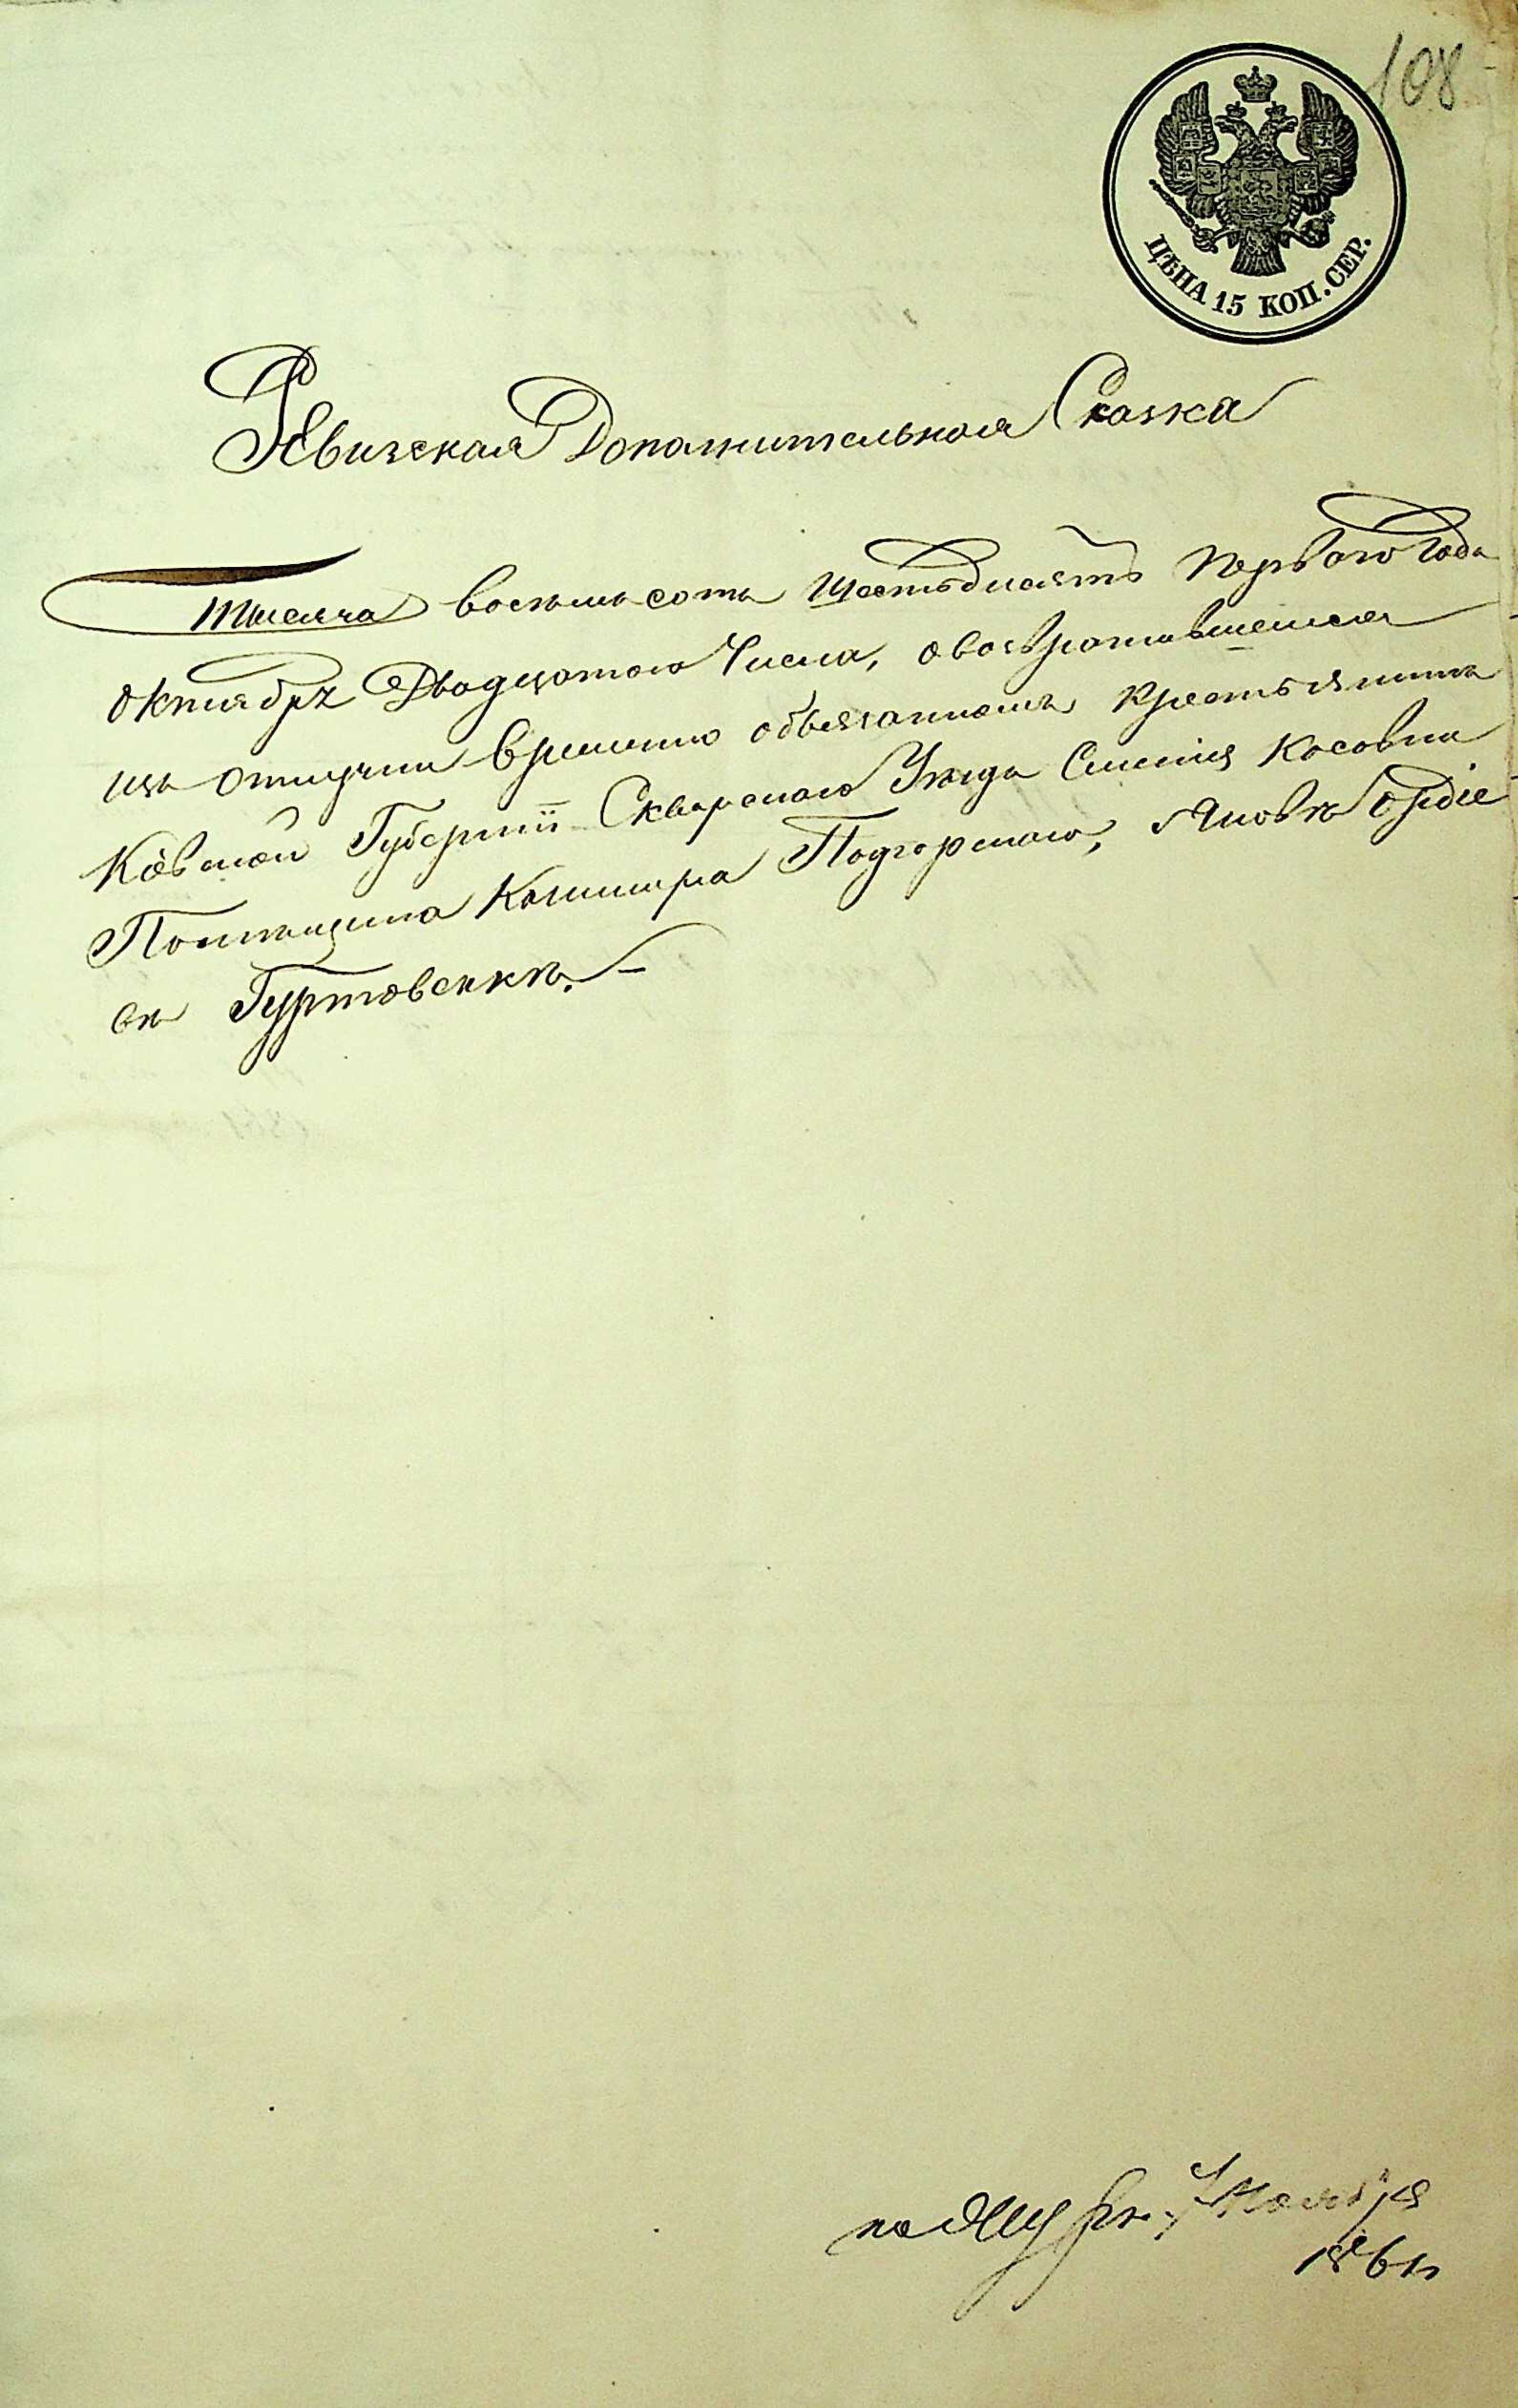 108
ЦѢНА 15 КОП. СЕР.
Ревизская Дополнительная Сказка
Тысяча восемьсотъ шестьдисятъ Первого Года
Октября Двадцатого Числа, овозвратившемся
изъ отлучки времинно обвязанномъ крестьянинѣ
Кіевской Губерніи Сквирского Уѣзда Имѣнія Косовки
Помѣщика Казимира Подгорского, Яковѣ
Гуртовенкѣ. –
Ноября
1861